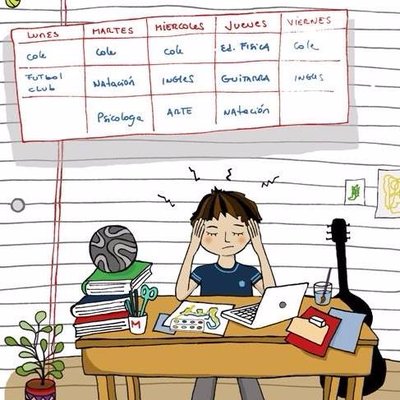 LUNES MARTES MIERCOLES JUEVES VIERNES
Cole Cole Cole Ed. FISICA Cole
FUTBOL CLUB NATACIÓN INGLES GUITARRA INGLES
Psicologa ARTE NATACIÓN
M